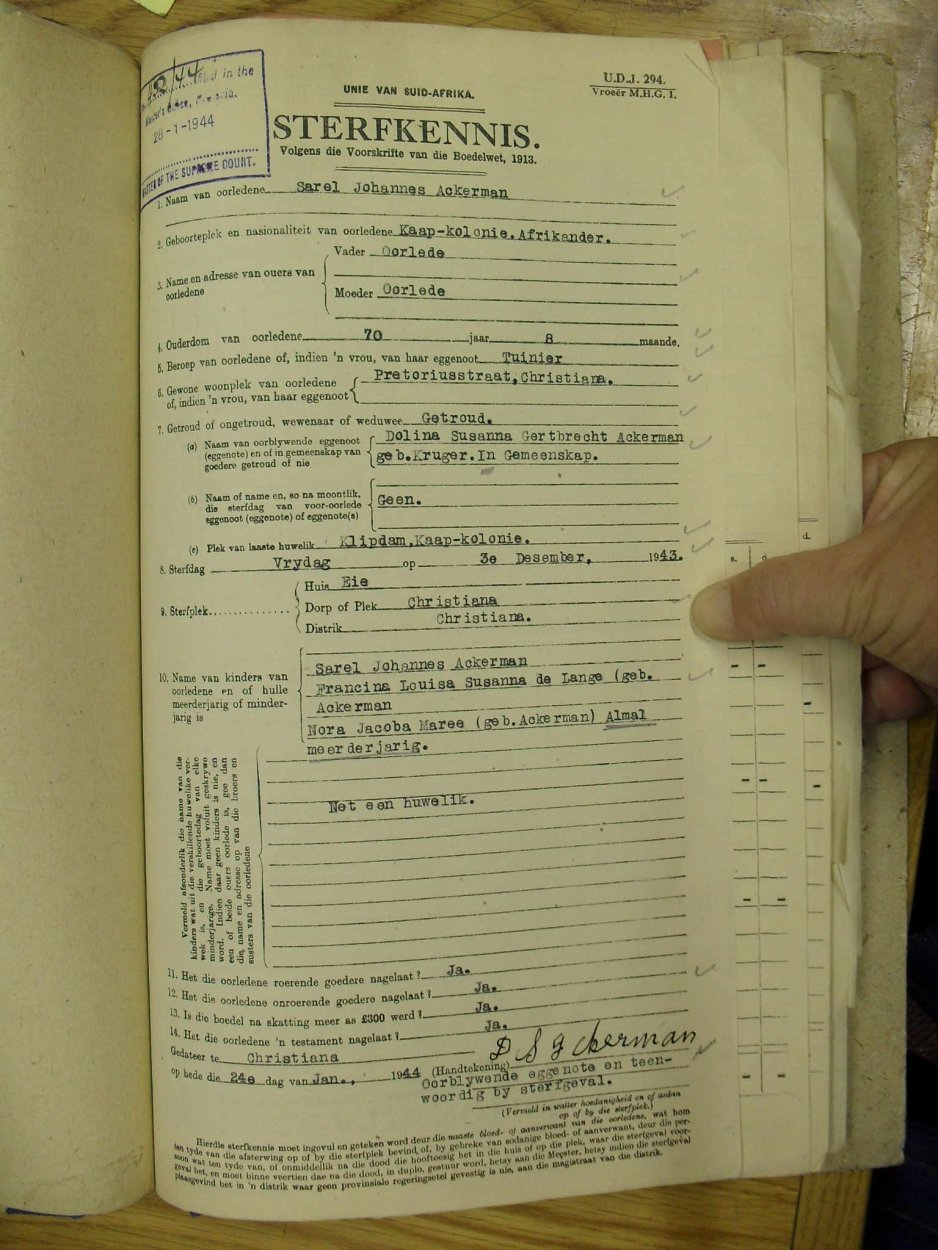 U.D.J. 294.
Vroeër M.H.G. I.
UNIE VAN SUID-AFRIKA.
STERFKENNIS.
Volgens die Voorskrifte van die Boedelwet, 1913.
in the
28-1-1944
OF THE SUPREME COURT.
1. Naam van oorledene Sarel Johannes Ackerman
2. Geboorteplek en nasionaliteit van oorledene Kaap-kolonie.Afrikander.
3. Name en adresse van ouers van oorledene
Vader Oorlede
Moeder Oorlede
4. Ouderdom van oorledene 70 jaar 8 maande.
5. Beroep van oorledene of, indien 'n vrou, van haar eggenoot Tuinier
6. Gewone woonplek van oorledene
of, indien 'n vrou, van haar eggenoot
Pretoriusstraat,Christiana.
7. Getroud of ongetroud, wewenaar of weduwee Getroud.
(a) Naam van oorblywende eggenoot
(eggenote) en of in gemeenskap van
goedere getroud of nie
Dolina Susanna Gertbrecht Ackerman
geb.Kruger.In Gemeenskap.
(b) Naam of name en, so na moontlik,
die sterfdag van voor-oorlede
eggenoot (eggenote) of eggenote(s)
Geen.
(c) Plek van laaste huwelik Klipdam,Kaap-kolonie.
8. Sterfdag Vrydag op 3e Desember, 1943.
9. Sterfplek
Huis Eie
Dorp of Plek Christiana
Distrik Christiana.
10. Name van kinders van
oorledene en of hulle
meerderjarig of minder-
jarig is
Sarel Johannes Ackerman
Francina Louisa Susanna de Lange (geb.
Ackerman
Nora Jacoba Maree (geb.Ackerman) Almal
meerderjarig.
Net een huwelik.
Vermeld afsonderlik die name van die
kinders wat uit die verskillende huwelike ver-
wek is, en die geboortedag van elke
minderjarige. Name moet voluit geskrywe
word. Indien daar geen kinders is nie, en
een of beide ouers oorlede is, gee dan
die name en adresse op van die broers en
susters van die oorledene
11. Het die oorledene roerende goedere nagelaat? Ja.
12. Het die oorledene onroerende goedere nagelaat? Ja.
13. Is die boedel na skatting meer as £300 werd? Ja.
14. Het die oorledene 'n testament nagelaat? Ja.
Gedateer te Christiana
D S G Ackerman
op hede die 24e dag van Jan., 1944 (Handtekening)
Oorblywende eggenote en teen-
woordig by sterfgeval.
(Vermeld in watter hoedanigheid en of aldan
op of by die sterfplek.)
Hierdie sterfkennis moet ingevul en geteken word deur die naaste bloed- of aanverwant van die oorledene, wat hom
ten tyde van die afsterwing op of by die sterfplek bevind of, by gebreke van sodanige bloed- of aanverwant, deur die per-
soon wat ten tyde van, of onmiddellik na die dood die hooftoesig het in die huis of op die plek, waar die sterfgeval voor-
geval het, en moet binne veertien dae na die dood, in duplo, gestuur word, hetsy aan die Meester, hetsy indien die sterfgeval
plaasgevind het in 'n distrik waar geen provinsiale regeringsetel gevestig is nie, aan die magistraat van die distrik.